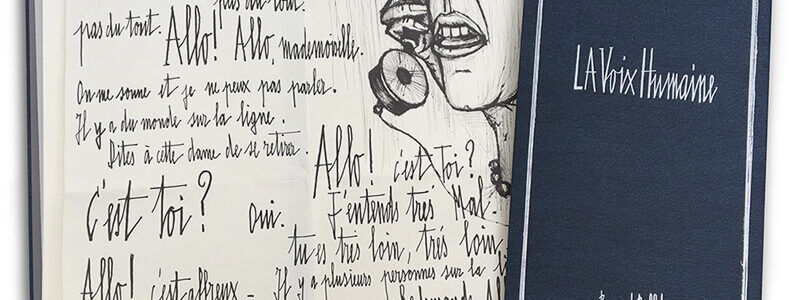 pas du tout.
pas du tout. Allo! Allo, mademoiselle.
On me sonne et je ne peux pas parler.
Il y a du monde sur la ligne.
Dites à cette dame de se retirer.
Allo! c'est Toi?
C'est toi? oui. J'entends très Mal-
tu es très loin, très loin
Allo! c'est affreux - Il y a plusieurs personnes sur la li
LA Voix Humaine